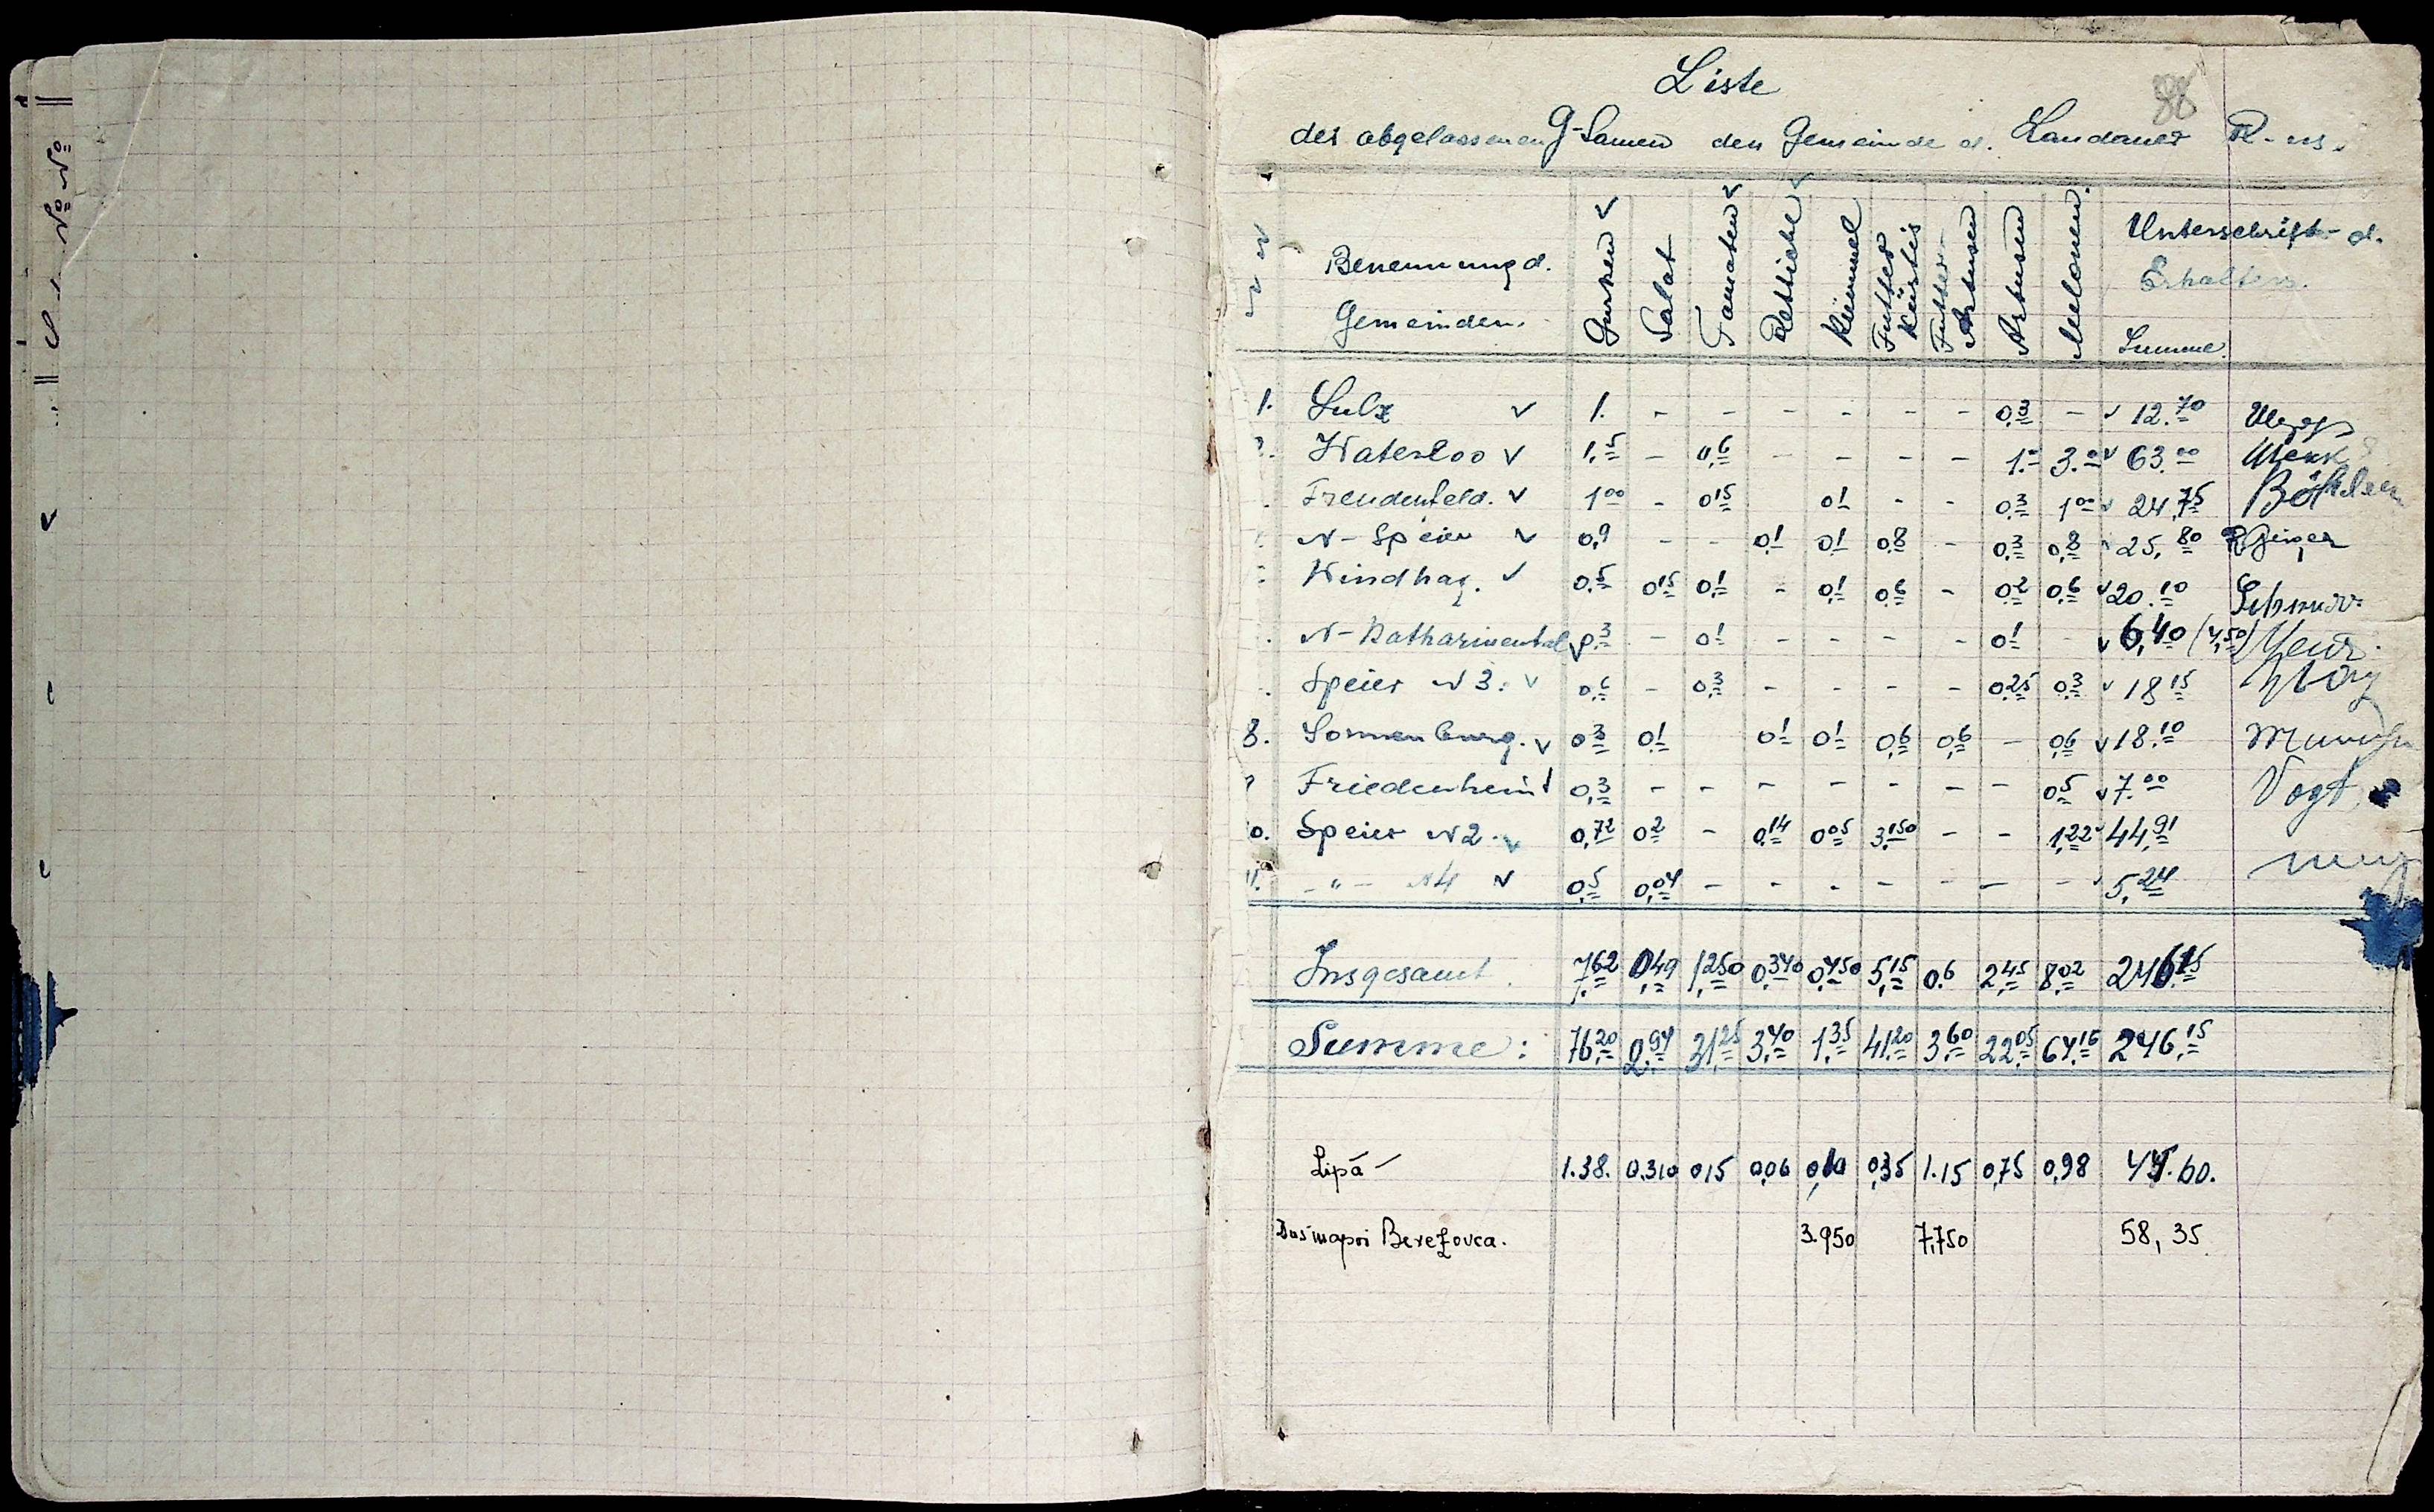 Liste
88
der abgelassenen G-Samen den Gemeinde d. Landauer R-ns.
Benennung d. Gemeinden. Gurken Salat Tamaten Rettiche Kümmel Futter Kürbis Futter- Arbusen Arbusen Melonen. Unterschrift d. Erhalters. Summe.
1. Sulz v 1. - - - - - - 0,3 - v 12.70
Waterloo v 1,5 - 0,6 - - - - 1.- 3.00 v 63.00
Freudenfeld. v 1 00 - 0 15 0 1 - - 0,3 1 00 v 24,75
N-Speier v 0,9 - - 0,1 0,1 0,8 - 0,3 0,8 25,80
Windhag. v 0,5 0 15 0,1 - 0,1 0,6 - 0,2 0,6 v 20.10
N-Katharinental v 0,3 - 0 1 - - - - 0 1 - v 6,40 (7,50)
Speier N 3. v 0,6 - 0,3 - - - - 0,25 0,3 v 18 15
8. Sonnenburg. v 0 3 0,1 0 1 0 1 0,6 0,6 - 0,6 v 18.10
Friedenheim 0,3 - - - - - - - 0 5 v 7.00 Vogt
0. Speier N 2. v 0,72 0 2 - 0,14 0 05 3,150 - - 1,22 44,91
11. -"- N 4 v 0,5 0,04 - - - - - - - 5,24
Insgesamt 7,62 0,49 1,250 0,340 0,450 5,15 0.6 2,45 8,02 246.15
Summe: 76,20 2,94 31,25 3,40 1,35 41,20 3,60 22,05 64,16 246,15
Lipă - 1.38. 0.310 0,15 0,06 0,10 0,35 1.15 0,75 0,98
Berezovca. 3.950 7,750 58,35